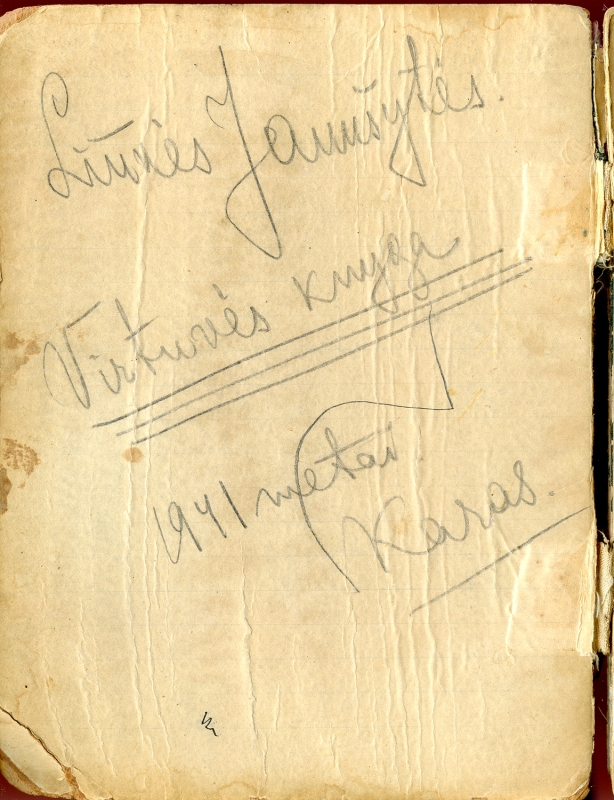 Liūnės Janušytės.
Virtuvės knyga
1941 metai.
Karas.